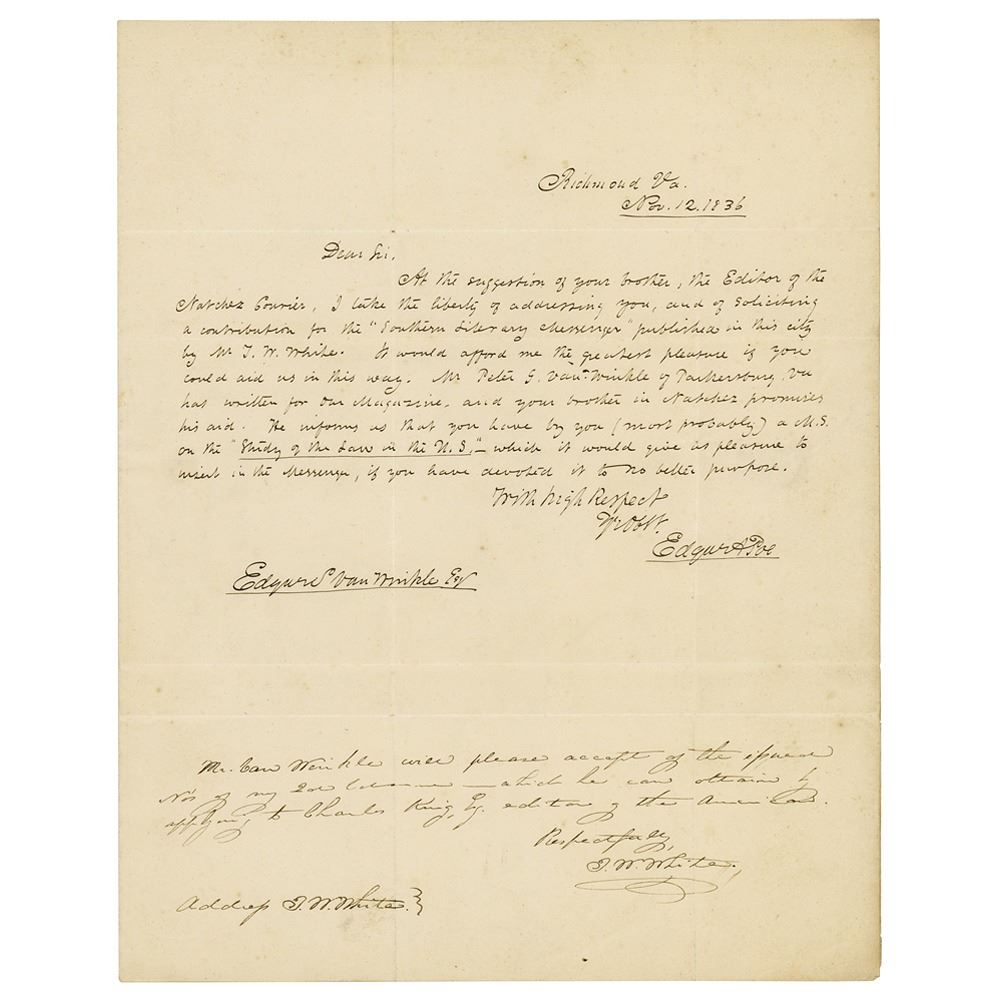 Richmond Va.
Nov. 12. 1836
Dear Sir,
At the suggestion of your brother, the Editor of the
Natchez Courier, I take the liberty of addressing you, and of soliciting
a contribution for the "Southern Literary Messenger" published in this city
by Mr T. W. White. It would afford me the greatest pleasure if you
could aid us in this way. Mr Peter G. Van-Winkle of Parkersburg, Va
has written for our Magazine, and your brother in Natchez promises
his aid. He informs us that you have by you (most probably) a M.S.
on the "Study of the Law in the U. S.", — which it would give us pleasure to
insert in the Messenger, if you have devoted it to no better purpose.
With high Respect
Yr. Ob. St.
Edgar A Poe
Edgar S Van Winkle Esqr
Mr. Van Winkle will please accept of the issued
Nos of my 2d volume — which he can obtain by
applying to Charles King, Esq. editor of the American.
Respectfully,
T. W. White.,
Address T. W. White. }